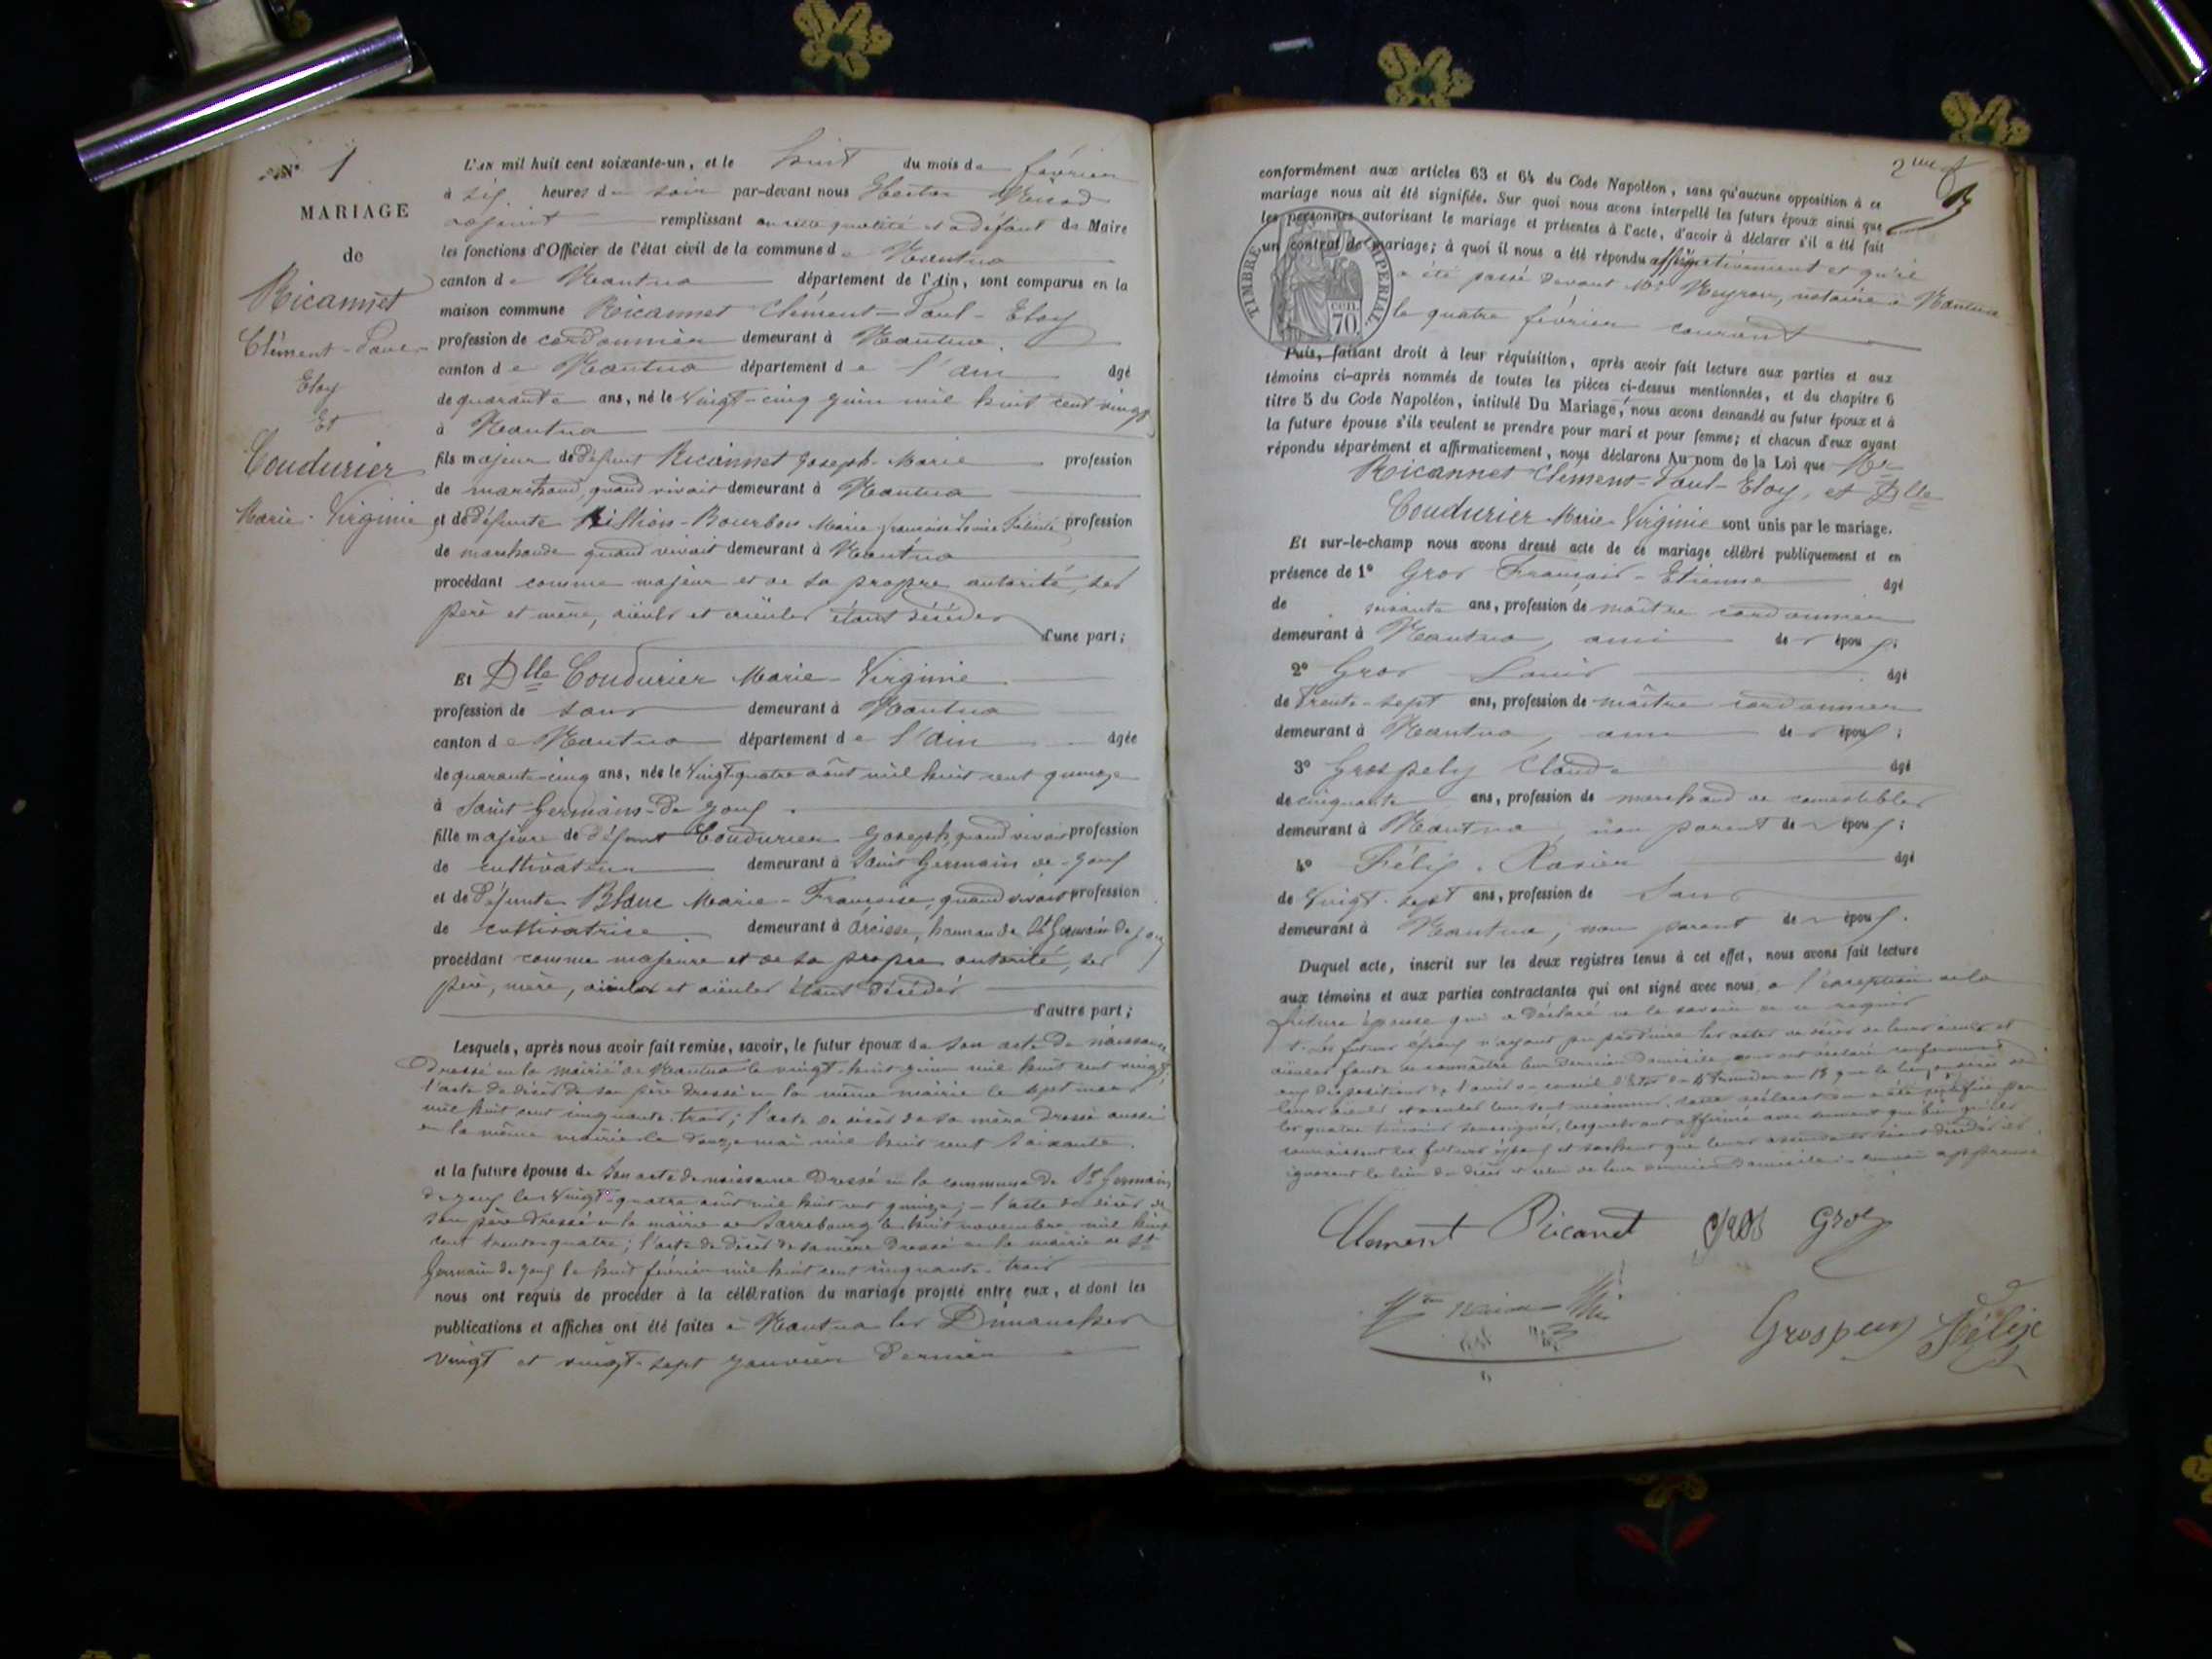 N° 1
MARIAGE
de
Ricannet
Clément-Paul-
Eloy
Et
Coudurier
Marie-Virginie
L'AN mil huit cent soixante-un, et le huit du mois de février
à six heures du soir par-devant nous Hector
adjoint remplissant en cette qualité et à défaut de Maire
les fonctions d'Officier de l'état civil de la commune de Nantua
canton de Nantua département de l'Ain, sont comparus en la
maison commune Ricannet Clément-Paul-Eloy
profession de cordonnier demeurant à Nantua
canton de Nantua département de l'ain âgé
de quarante ans, né le vingt-cinq juin mil huit cent vingt
à Nantua
fils majeur de défunt Ricannet Joseph-Marie profession
de marchand, quand vivait demeurant à Nantua
et de défunte Million-Bourbon Marie françoise Louise profession
de marchande quand vivait demeurant à Nantua
procédant comme majeur et de sa propre autorité, ses
père et mère, aïeuls et aïeules étant décédés
d'une part;
Et Dlle Coudurier Marie-Virginie
profession de sans demeurant à Nantua
canton de Nantua département de l'ain âgée
de quarante-cinq ans, née le vingt-quatre août mil huit cent quinze
à Saint Germain-de-Joux
fille majeure de défunt Coudurier Joseph, quand vivait profession
de cultivateur demeurant à Saint Germain de-Joux
et de défunte Blanc Marie-Françoise, quand vivait profession
de cultivatrice demeurant à hameau de St Germain de Joux
procédant comme majeure et de sa propre autorité, ses
père, mère, aïeuls et aïeules étant décédés
d'autre part;
Lesquels, après nous avoir fait remise, savoir, le futur époux de son acte de naissance
dressé en la mairie de Nantua le vingt-huit juin mil huit cent vingt,
l'acte de décès de son père dressé en la même mairie le sept mars
mil huit cent cinquante-trois; l'acte de décès de sa mère dressé aussi
en la même mairie le douze mai mil huit cent soixante.
et la future épouse de son acte de naissance dressé en la commune de St Germain
de Joux le vingt-quatre août mil huit cent quinze; l'acte de décès de
son père dressé en la mairie de Sarrebourg le huit novembre mil huit
cent trente-quatre; l'acte de décès de sa mère dressé en la mairie de St
Germain de Joux le huit février mil huit cent cinquante-trois
nous ont requis de procéder à la célébration du mariage projeté entre eux, et dont les
publications et affiches ont été faites à Nantua les Dimanches
vingt et vingt-sept janvier dernier
2me
conformément aux articles 63 et 64 du Code Napoléon, sans qu'aucune opposition à ce
mariage nous ait été signifiée. Sur quoi nous avons interpellé les futurs époux ainsi que
les personnes autorisant le mariage et présentes à l'acte, d'avoir à déclarer s'il a été fait
un contrat de mariage; à quoi il nous a été répondu affirmativement et qu'il
a été passé devant Me notaire à Nantua
le quatre février courant
TIMBRE IMPERIAL
70 cen
Puis, faisant droit à leur réquisition, après avoir fait lecture aux parties et aux
témoins ci-après nommés de toutes les pièces ci-dessus mentionnées, et du chapitre 6
titre 5 du Code Napoléon, intitulé Du Mariage, nous avons demandé au futur époux et à
la future épouse s'ils veulent se prendre pour mari et pour femme; et chacun d'eux ayant
répondu séparément et affirmativement, nous déclarons Au nom de la Loi que Mr
Ricannet Clément-Paul-Eloy, et Dlle
Coudurier Marie-Virginie sont unis par le mariage.
Et sur-le-champ nous avons dressé acte de ce mariage célébré publiquement et en
présence de 1° Gros François-Etienne âgé
de soixante ans, profession de maître cordonnier
demeurant à Nantua, ami des époux;
2° Gros Louis âgé
de trente-sept ans, profession de maître cordonnier
demeurant à Nantua, ami des époux;
3° Grospely Claude âgé
de cinquante ans, profession de marchand de comestibles
demeurant à Nantua, non parent des époux;
4° Félix Xavier âgé
de vingt-sept ans, profession de Sans
demeurant à Nantua, non parent des époux.
Duquel acte, inscrit sur les deux registres tenus à cet effet, nous avons fait lecture
aux témoins et aux parties contractantes qui ont signé avec nous à l'exception de la
future épouse qui a déclaré ne le savoir de ce requis
Les futurs époux n'ayant pu produire les actes de décès de leurs aïeuls et
aïeules faute de connaître leur dernier domicile
les quatre témoins soussignés, lesquels ont affirmé avec serment que bien qu'ils
connaissent les futurs époux
ignorent le lieu du décès et celui de leur dernier domicile
Clément Ricanet Gros Gros
Félix